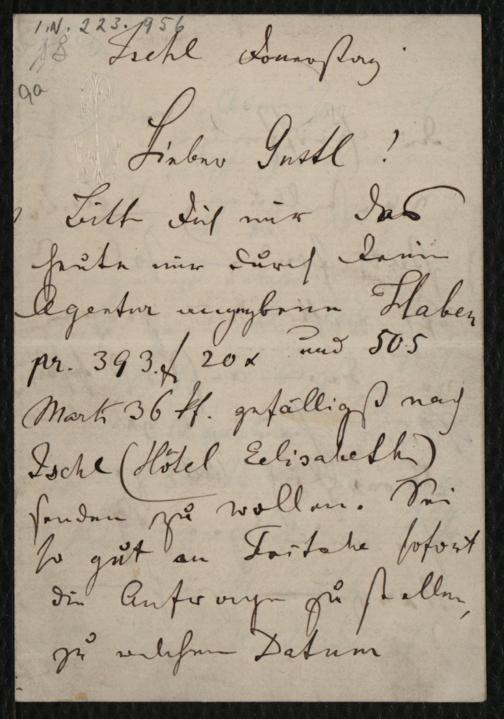 I.N. 223.956
18
9a
Ischl Donnerstag
Lieber Gustl!
Bitte Dich mir das
heute mir durch Deine
Agentur angegebene Haben
pr. 393 f 20 x und 505
Mark 36 Pf. gefälligst nach
Ischl (Hôtel Elisabeth)
senden zu wollen. Sei
so gut an sofort
die Anfrage zu stellen,
zu welchem Datum